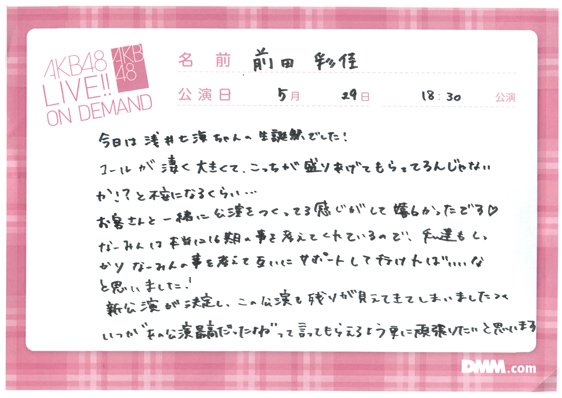 AKB48
LIVE!!
ON DEMAND
AKB
48
名前 前田 彩佳
公演日 5月 29日 18:30 公演
今日は浅井七海ちゃんの生誕祭でした!
コールが凄く大きくて、こっちが盛りあげてもらってるんじゃない
か!?と不安になるくらい…
お客さんと一緒に公演をつくってる感じがして嬉しかったです♡
なーみんは本当に16期の事を考えてくれているので、私達もしっ
かりなーみんの事を考えて互いにサポートして行ければいいな
と思いました!
新公演が決定し、この公演も残りが見えてきてしまいました
いつか「あの公演最高だったよね」って言ってもらえるよう更に頑張りたいと思います
DMM.com